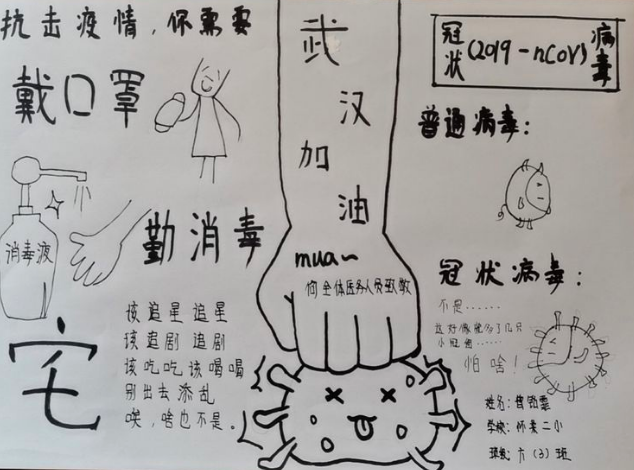 抗击疫情,你需要
戴口罩
消毒液
勤消毒
宅
该追星追星
该追剧追剧
该吃吃该喝喝
别出去添乱
唉,啥也不是。
武
汉
加
油
mua~
向全体医务人员致敬
冠状(2019-nCoV)病毒
普通病毒:
冠状病毒:
不是……
小冠冠…
怕啥!
姓名:
学校:怀来二小
班级:六(3)班